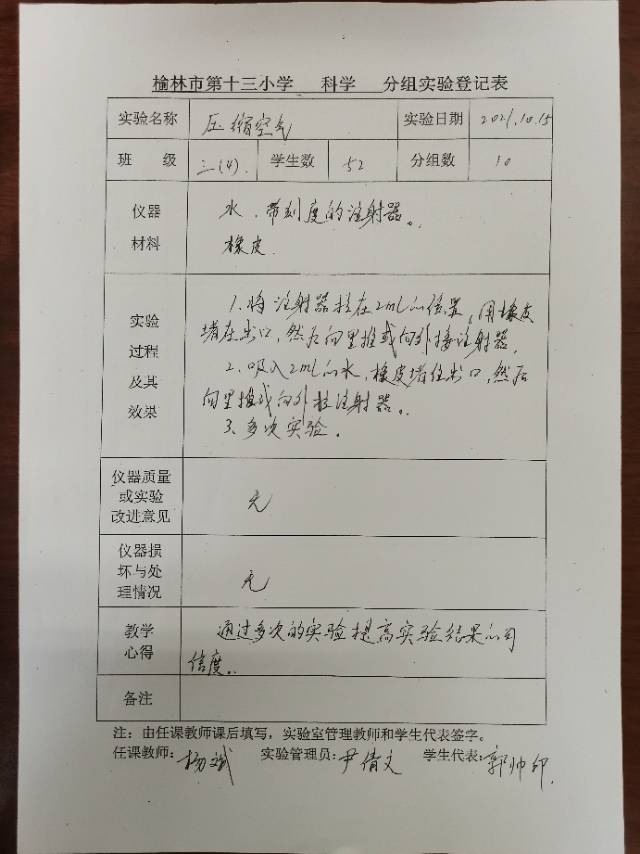 榆林市第十三小学 科学 分组实验登记表
实验名称 压缩空气 实验日期 2021.10.15
班 级 三(4). 学生数 52 分组数 10
仪器 水、带刻度的注射器。
材料 橡皮
1.将注射器拉在2mL的位置,用橡皮
实验 堵在出口,然后向里推或向外接注射器。
过程 2.吸入2mL的水,橡皮堵住出口,然后
及其 向里推或向外拉注射器。
效果 3.多次实验。
仪器质量
或实验
改进意见 无
仪器损
坏与处
理情况 无
教学 通过多次的实验提高实验结果的可
心得 信度。
备注
注:由任课教师课后填写,实验室管理教师和学生代表签字。
任课教师:杨斌 实验管理员:尹倩文 学生代表:郭帅